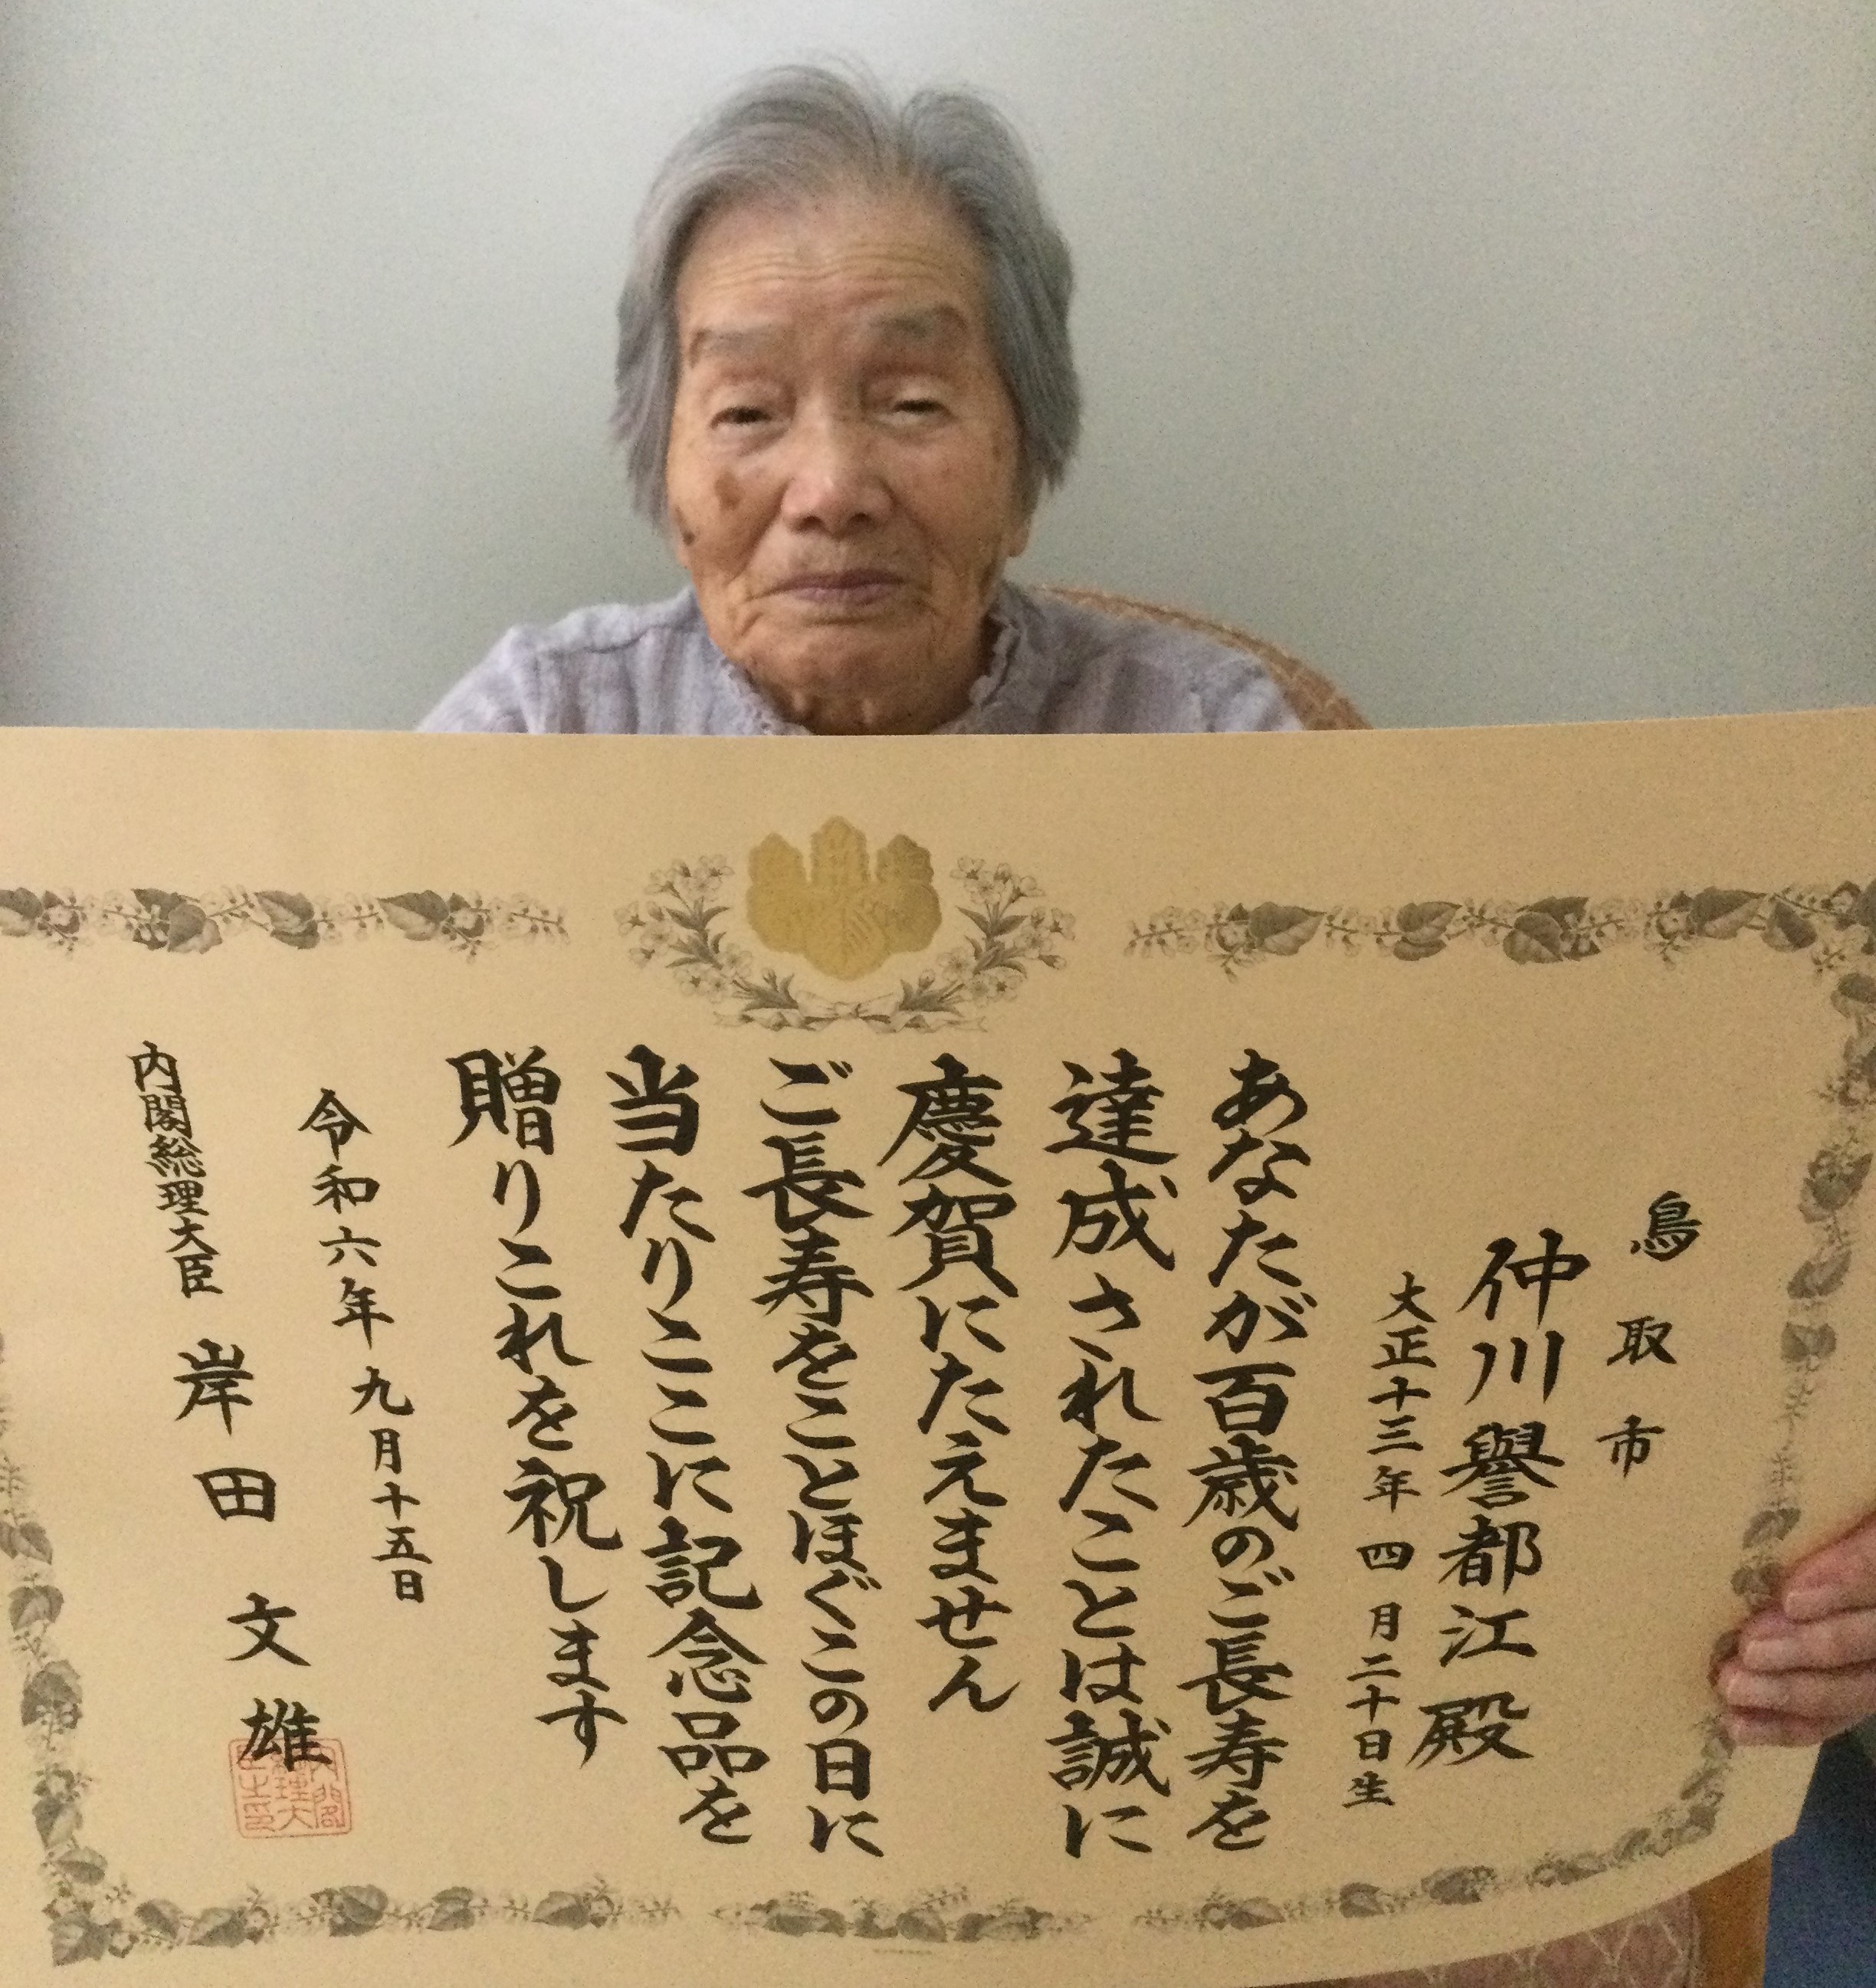 鳥取市
仲川譽都江殿
大正十三年四月二十日生
あなたが百歳のご長寿を
達成されたことは誠に
慶賀にたえません
ご長寿をことほぐこの日に
当たりここに記念品を
贈りこれを祝します
令和六年九月十五日
内閣総理大臣 岸田文雄